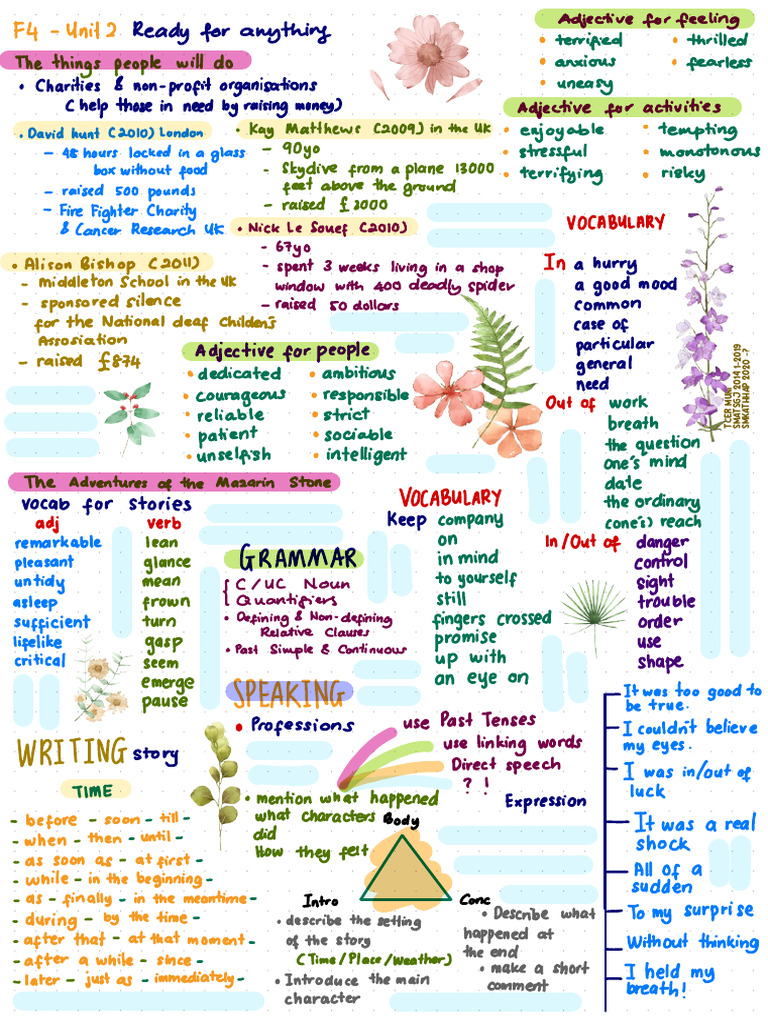 F4 - Unit 2 Ready for anything
The things people will do
• Charities & non-profit organisations
( help those in need by raising money)
• David hunt (2010) London
- 48 hours locked in a glass
box without food
- raised 500 pounds
- Fire Fighter Charity
& Cancer Research UK
• Kay Matthews (2009) in the UK
- 90yo
- Skydive from a plane 13000
feet above the ground
- raised £2000
• Nick Le Souef (2010)
- 67yo
- spent 3 weeks living in a shop
window with 400 deadly spider
- raised 50 dollars
• Alison Bishop (2011)
- middleton School in the UK
- sponsored silence
for the National deaf Childen's
Association
- raised £874
Adjective for feeling
• terrified
• anxious
uneasy
• thrilled
• fearless
Adjective for activities
• enjoyable
• stressful
• terrifying
• tempting
• monotonous
• risky
Adjective for people
• dedicated
• courageous
• reliable
• patient
• unselfish
• ambitious
• responsible
• strict
• sociable
• intelligent
VOCABULARY
In a hurry
a good mood
common
case of
particular
general
need
Out of work
breath
the question
one's mind
date
the ordinary
(one's) reach
In/Out of danger
control
sight
trouble
order
use
shape
TCER MUNA
SMATSGJ 2014 1-2019
SMKATHHAP 2020 -?
The Adventures of the Mazarin Stone
vocab for stories
adj
remarkable
pleasant
untidy
asleep
sufficient
lifelike
critical
verb
lean
glance
mean
frown
turn
gasp
seem
emerge
pause
GRAMMAR
C/UC Noun
Quantifiers
• Defining & Non-defining
Relative Clauses
• Past Simple & Continuous
VOCABULARY
Keep company
on
in mind
to yourself
still
fingers crossed
promise
up with
an eye on
SPEAKING
• Professions
WRITING story
TIME
- before - soon - till -
- when - then - until -
- as soon as - at first -
- while - in the beginning -
- as - finally - in the meantime -
- during - by the time -
- after that - at that moment -
- after a while - since -
- later - just as - immediately -
use Past Tenses
use linking words
Direct speech
? !
• mention what happened
what characters
did
How they felt
Body
Intro
• describe the setting
of the story
(Time/Place/Weather)
• Introduce the main
character
Conc
• Describe what
happened at
the end
• make a short
comment
Expression
It was too good to
be true.
I couldn't believe
my eyes.
I was in/out of
luck
It was a real
shock
All of a
sudden
To my surprise
Without thinking
I held my
breath!